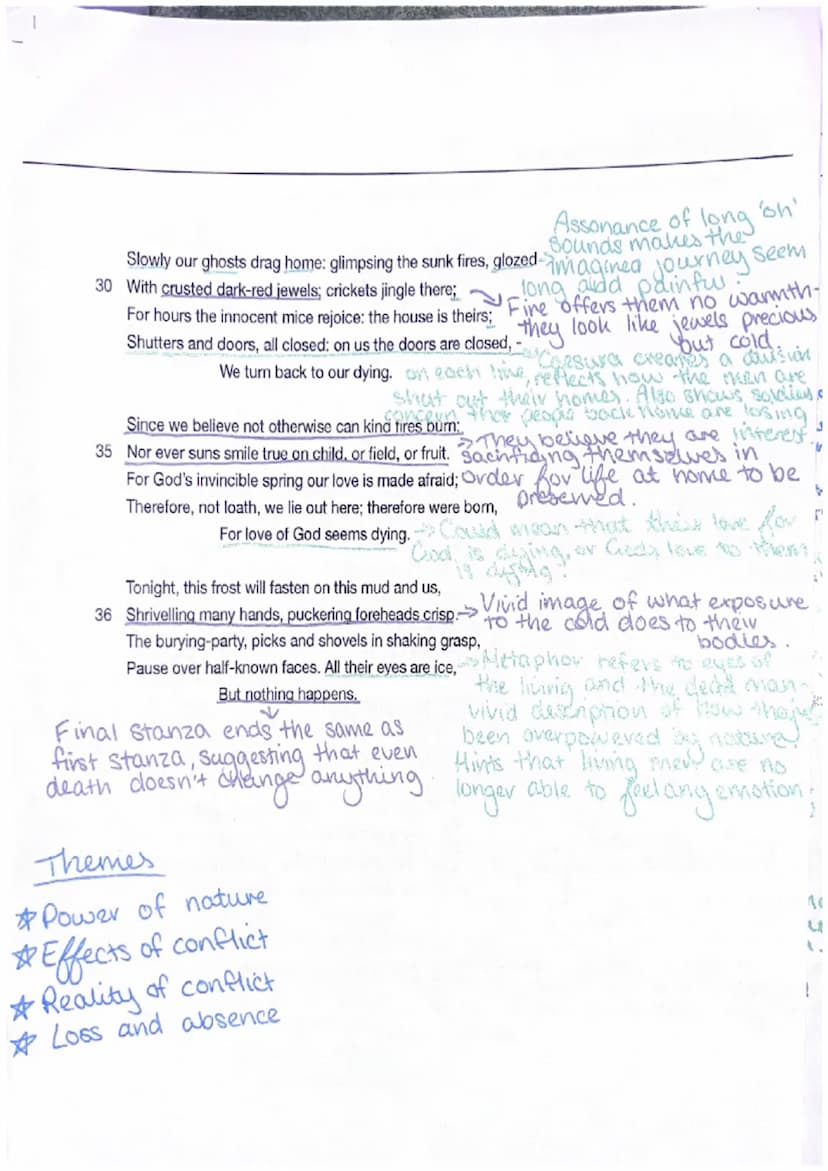 Slowly our ghosts drag home: glimpsing the sunk fires, glozed
30 With crusted dark-red jewels; crickets jingle there;
For hours the innocent mice rejoice: the house is theirs;
Shutters and doors, all closed: on us the doors are closed, -
We turn back to our dying.
Assonance of long 'oh'
sounds makes the
imagined journey seem
long and painful.
Fire offers them no warmth-
they look like jewels precious
but cold.
Caesura creates a division
on each line, reflects how the men are
shut out their homes. Also shows soldiers
concern that people back home are losing
interest.
Since we believe not otherwise can kind fires burn;
35 Nor ever suns smile true on child, or field, or fruit.
For God's invincible spring our love is made afraid;
Therefore, not loath, we lie out here; therefore were born,
For love of God seems dying.
They believe they are
sacrificing themselves in
order for life at home to be
preserved.
Could mean that their love for
God is dying, or God's love to them
is dying.
Tonight, this frost will fasten on this mud and us,
36 Shrivelling many hands, puckering foreheads crisp.
The burying-party, picks and shovels in shaking grasp,
Pause over half-known faces. All their eyes are ice,
But nothing happens.
Vivid image of what exposure
to the cold does to their
bodies.
Metaphor refers to eyes of
the living and the dead man-
vivid description of how they
been overpowered by nature.
Hints that living men are no
longer able to feel any emotion.
Final stanza ends the same as
first stanza, suggesting that even
death doesn't change anything
Themes
Power of nature
Effects of conflict
Reality of conflict
Loss and absence